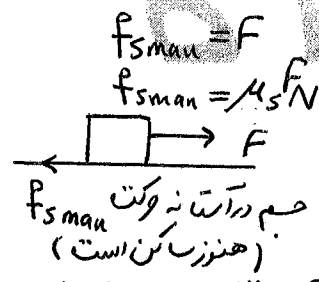 fsmax = F
fsmax = μs FN
F
fsmax
جسم در آستانه حرکت
(هنوز ساکن است)